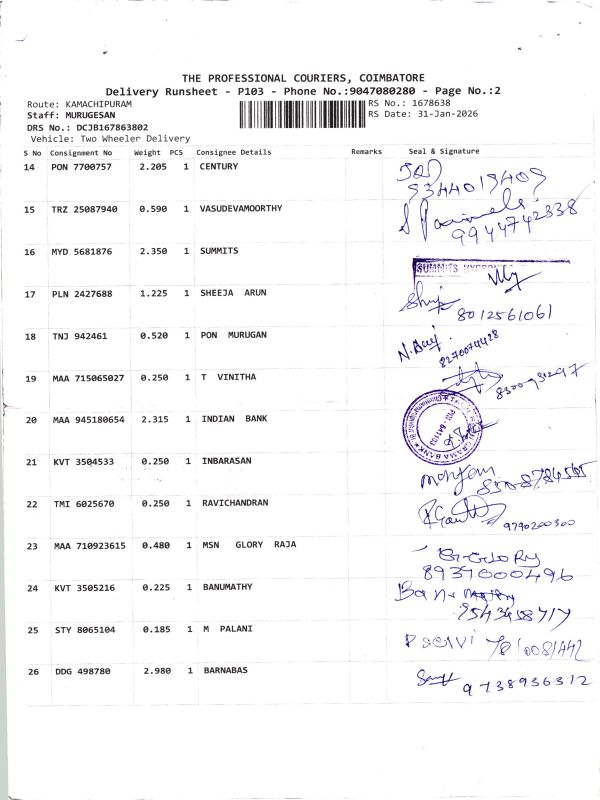 THE PROFESSIONAL COURIERS, COIMBATORE
Delivery Runsheet - P103 - Phone No.:9047080280 - Page No.:2
Route: KAMACHIPURAM
RS No.: 1678638
Staff: MURUGESAN
RS Date: 31-Jan-2026
DRS No.: DCJB167863802
Vehicle: Two Wheeler Delivery
S No Consignment No Weight PCS Consignee Details Remarks Seal & Signature
14 PON 7700757 2.205 1 CENTURY
9344019409
15 TRZ 25087940 0.590 1 VASUDEVAMOORTHY
9944742338
16 MYD 5681876 2.350 1 SUMMITS
SUMMITS
17 PLN 2427688 1.225 1 SHEEJA ARUN
8012561061
18 TNJ 942461 0.520 1 PON MURUGAN
8270074428
19 MAA 715065027 0.250 1 T VINITHA
20 MAA 945180654 2.315 1 INDIAN BANK
GRAMA BANK
21 KVT 3504533 0.250 1 INBARASAN
22 TMI 6025670 0.250 1 RAVICHANDRAN
9790200300
23 MAA 710923615 0.480 1 MSN GLORY RAJA
GLORY
8937000496
24 KVT 3505216 0.225 1 BANUMATHY
25 STY 8065104 0.185 1 M PALANI
26 DDG 498780 2.980 1 BARNABAS
9738936312